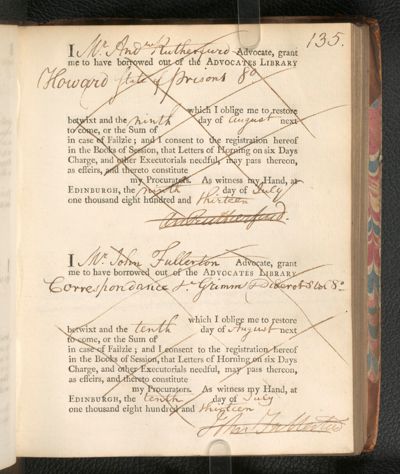 135.
I Mr. Andw Rutherfurd Advocate, grant
me to have borrowed out of the ADVOCATES LIBRARY
Howard State of prisons 8o
which I oblige me to restore
betwixt and the ninth day of August next
to come, or the Sum of
in case of Failzie; and I consent to the registration hereof
in the Books of Session, that Letters of Horning on six Days
Charge, and other Executorials needful, may pass thereon,
as effeirs, and thereto constitute
my Procurators. As witness my Hand, at
EDINBURGH, the ninth day of July
one thousand eight hundred and thirteen
And Rutherfurd.
I Mr. John Fullerton Advocate, grant
me to have borrowed out of the ADVOCATES LIBRARY
Correspondance de Grimm & Diderot 8o
which I oblige me to restore
betwixt and the tenth day of August next
to come, or the Sum of
in case of Failzie; and I consent to the registration hereof
in the Books of Session, that Letters of Horning on six Days
Charge, and other Executorials needful, may pass thereon,
as effeirs, and thereto constitute
my Procurators. As witness my Hand, at
EDINBURGH, the tenth day of July
one thousand eight hundred and thirteen
John Fullerton